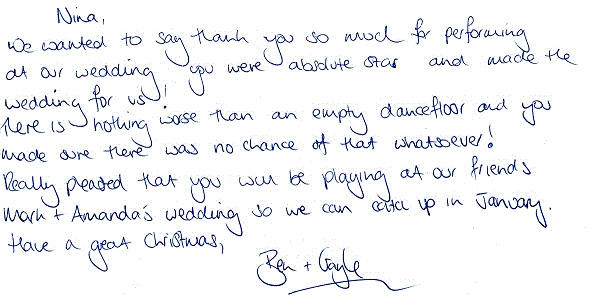 Nina,
We wanted to say thank you so much for performing
at our wedding you were absolute star and made the
wedding for us!
There is nothing worse than an empty dancefloor and you
made sure there was no chance of that whatsoever!
Really pleased that you will be playing at our friends
Mark + Amanda's wedding so we can catch up in January.
Have a great Christmas,
Ben + Gayle